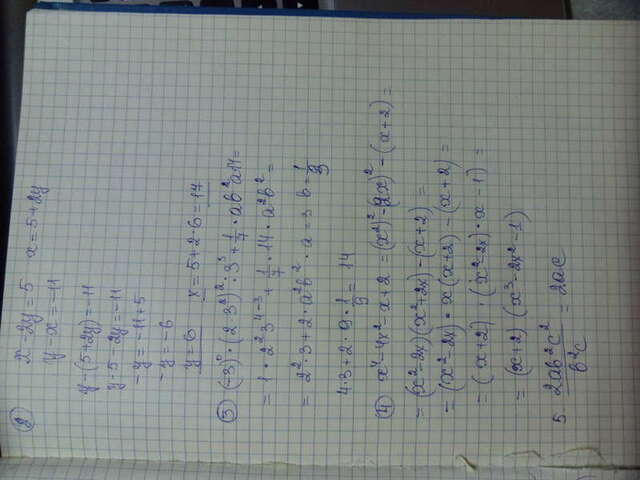 ② x - 2y = 5 x = 5 + 2y
y - x = -11
y - (5 + 2y) = -11
y - 5 - 2y = -11
-y = -11 + 5
-y = -6
y = 6 x = 5 + 2 · 6 = 17
③ (-3)⁰ · (2 · 3²)² : 3³ + 1/7 · ab²a14 =
= 1 · 2²3⁴⁻³ + 1/7 · 14 · a²b² =
= 2² · 3 + 2 · a²b² · a = 3 b = 1/3
4 · 3 + 2 · 9 · 1/9 = 14
④ x⁴ - 4x² - x + 2 = (x²)² - (2x)² - (x + 2) =
= (x² - 2x)(x² + 2x) - (x + 2) =
= (x² - 2x) · x (x + 2) - (x + 2) =
= (x + 2) · (x² - 2x) · x - 1) =
= (x + 2) (x³ - 2x² - 1)
5. 2ab²c² / b²c = 2ac